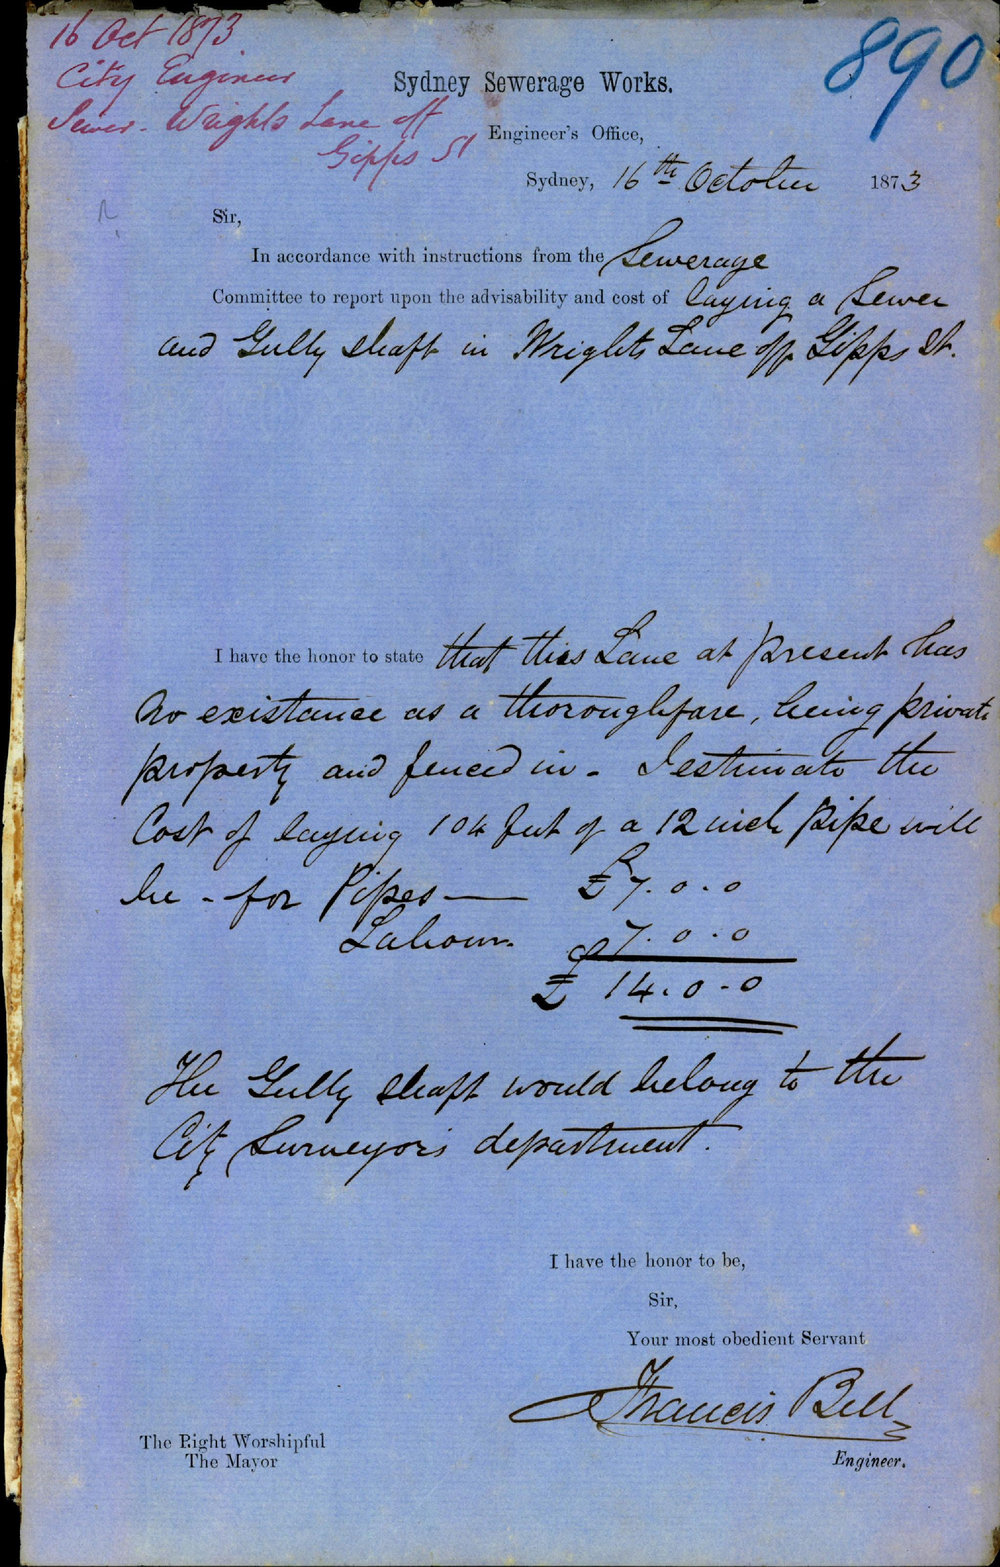 16 Oct 1873
City Engineer
Sewer - Wrights Lane off
Gipps St
890
Sydney Sewerage Works.
Engineer's Office,
Sydney, 16th October 1873
Sir,
In accordance with instructions from the Sewerage
Committee to report upon the advisability and cost of laying a Sewer
and Gully shaft in Wrights Lane off Gipps St.
I have the honor to state that this Lane at present has
no existance as a thoroughfare, being private
property and fenced in - I estimate the
Cost of laying 104 feet of a 12 inch pipe will
be - for Pipes — £7.0.0
Labour. 7.0.0
£ 14.0.0
The Gully shaft would belong to the
City Surveyors department.
I have the honor to be,
Sir,
Your most obedient Servant
Francis Bell
Engineer.
The Right Worshipful
The Mayor